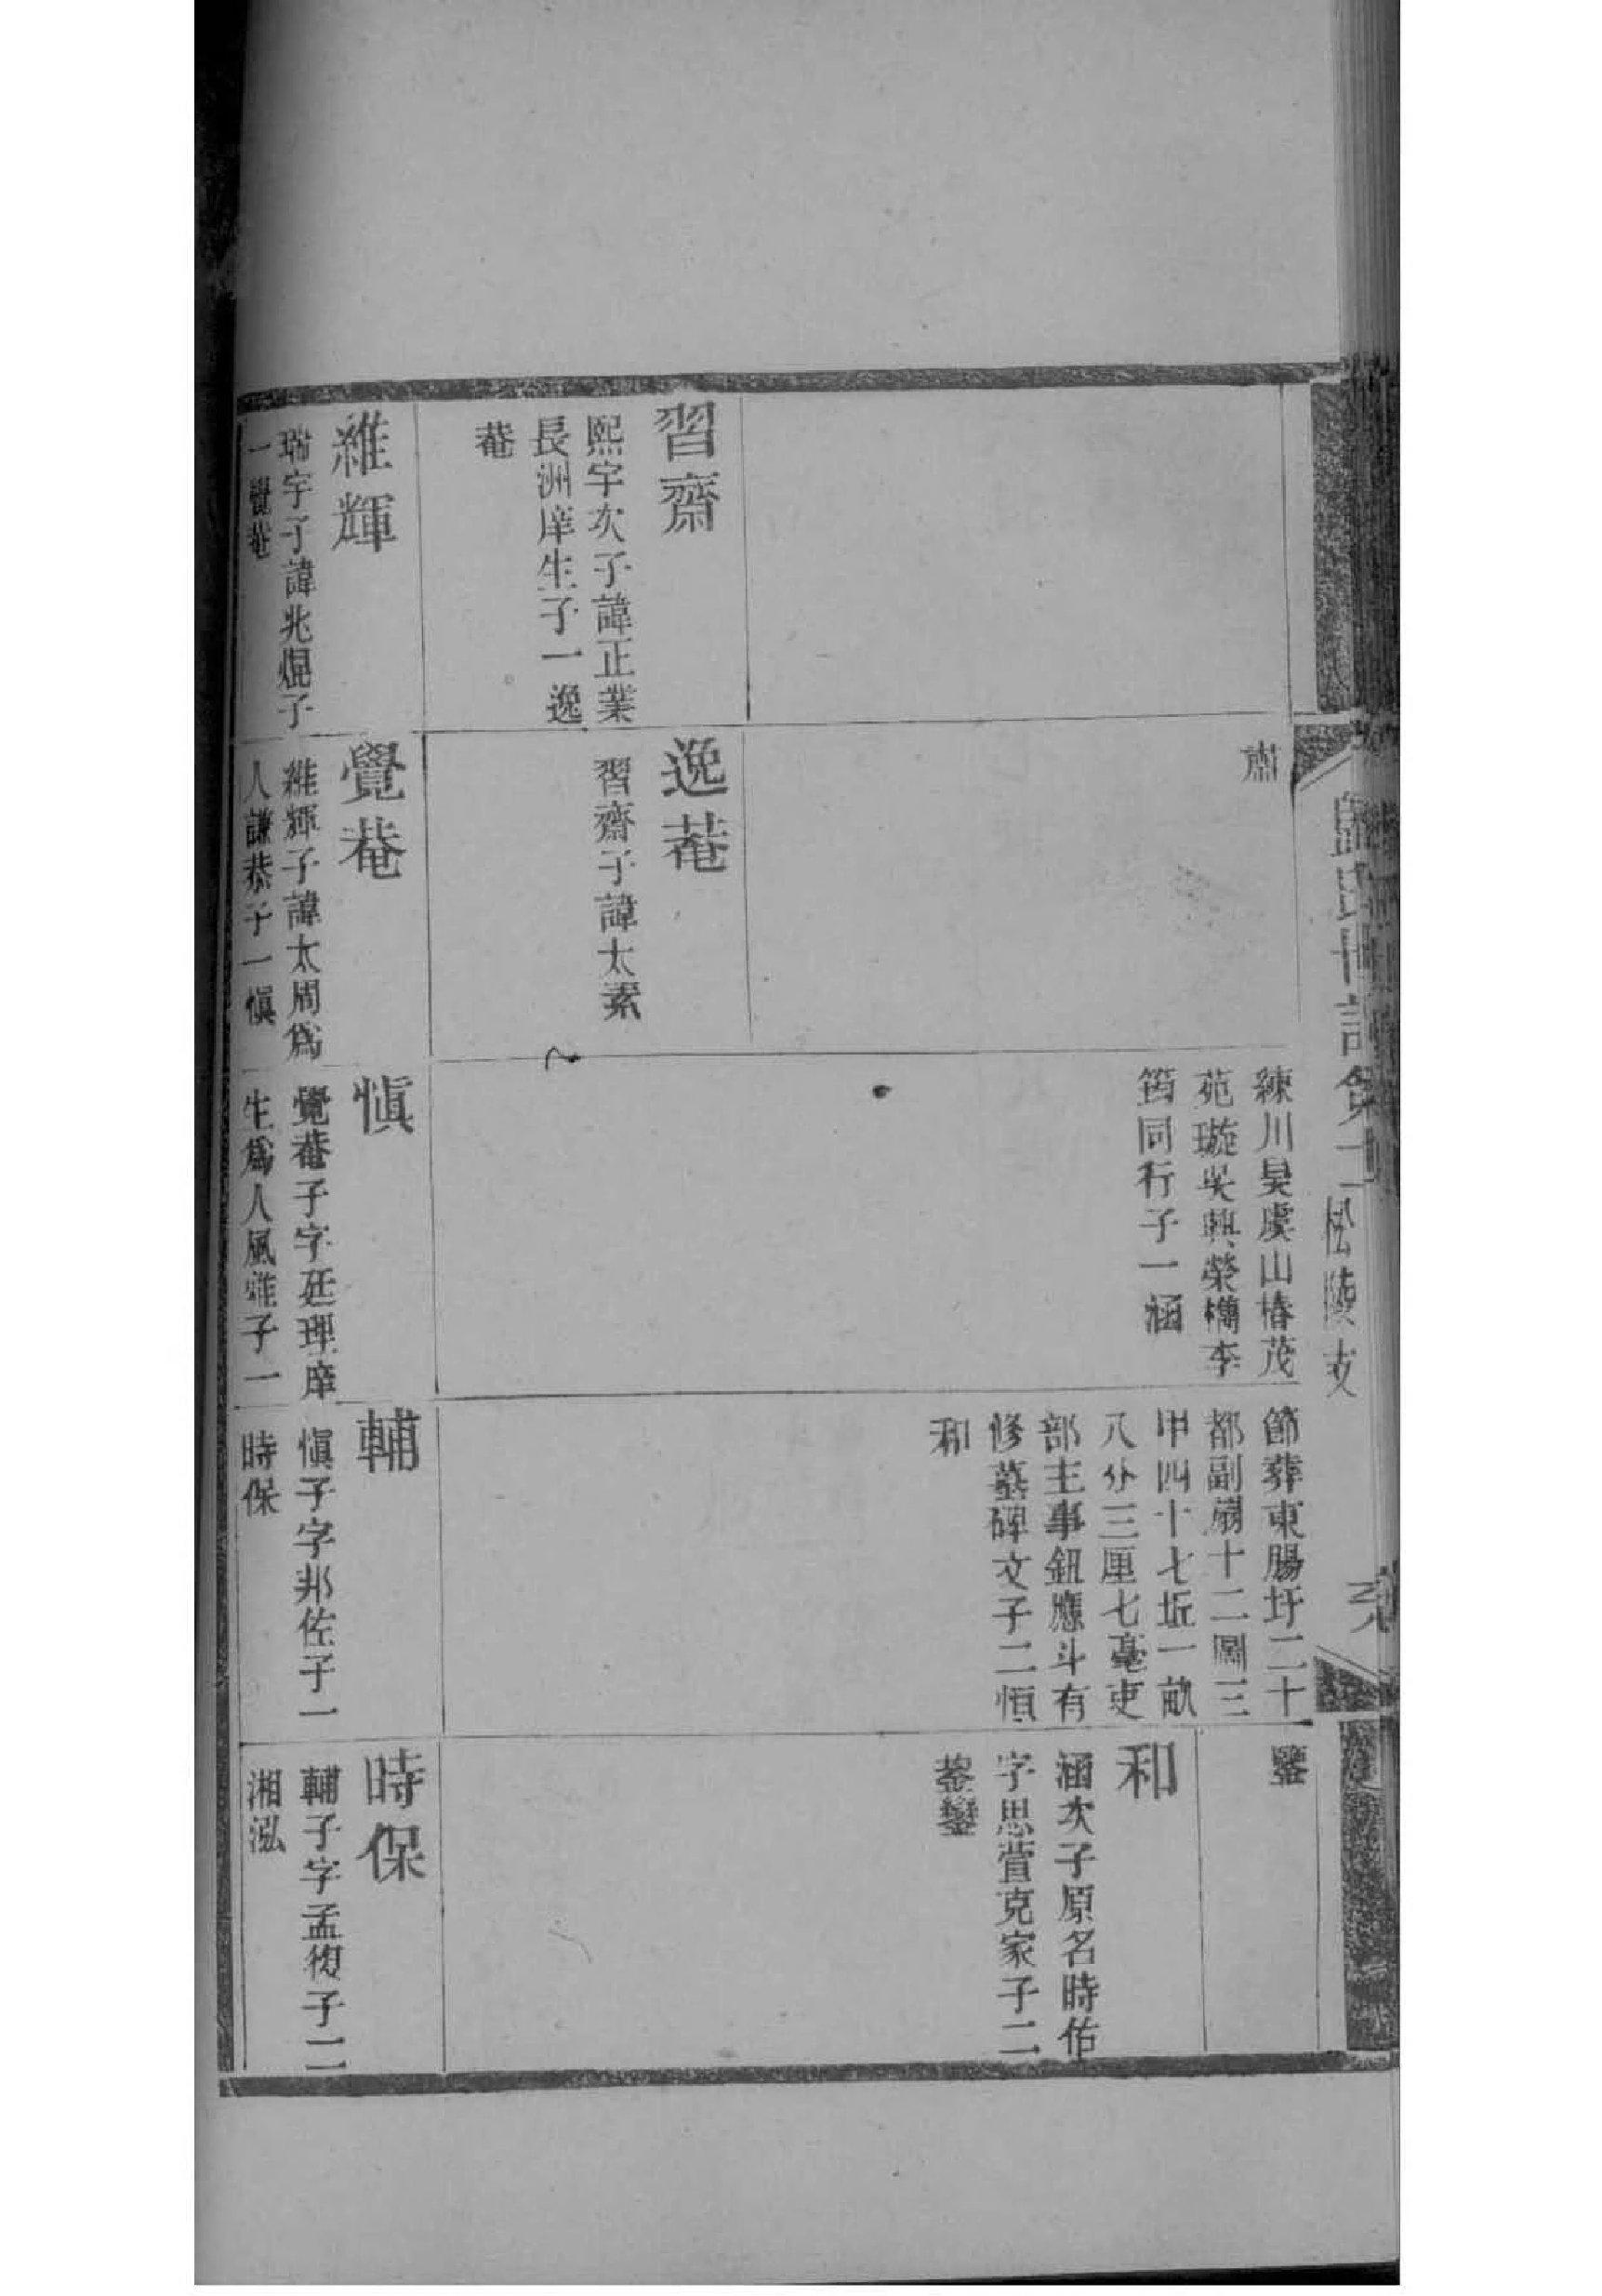 歸氏世譜卷二
松陵支
習齋
熙宇次子諱正業
長洲庠生子一逸
菴
維輝
瑞宇子諱兆焜子
一覺菴
肅
逸菴
習齋子諱太素
覺菴
維輝子諱太周爲
人謙恭子一愼
練川昊虞山椿茂
苑璇吳興榮檇李
筠同行子一涵
愼
覺菴子字廷理庠
生爲人風雅子一
節葬東腸圩二十
都副扇十二圖三
甲四十七坵一畝
八分三厘七毫吏
部主事鈕應斗有
修墓碑文子二恒
和
輔
愼子字邦佐子一
時保
鑒
和
涵次子原名時佑
字思萱克家子二
鋆鑾
時保
輔子字孟復子二
湘泓